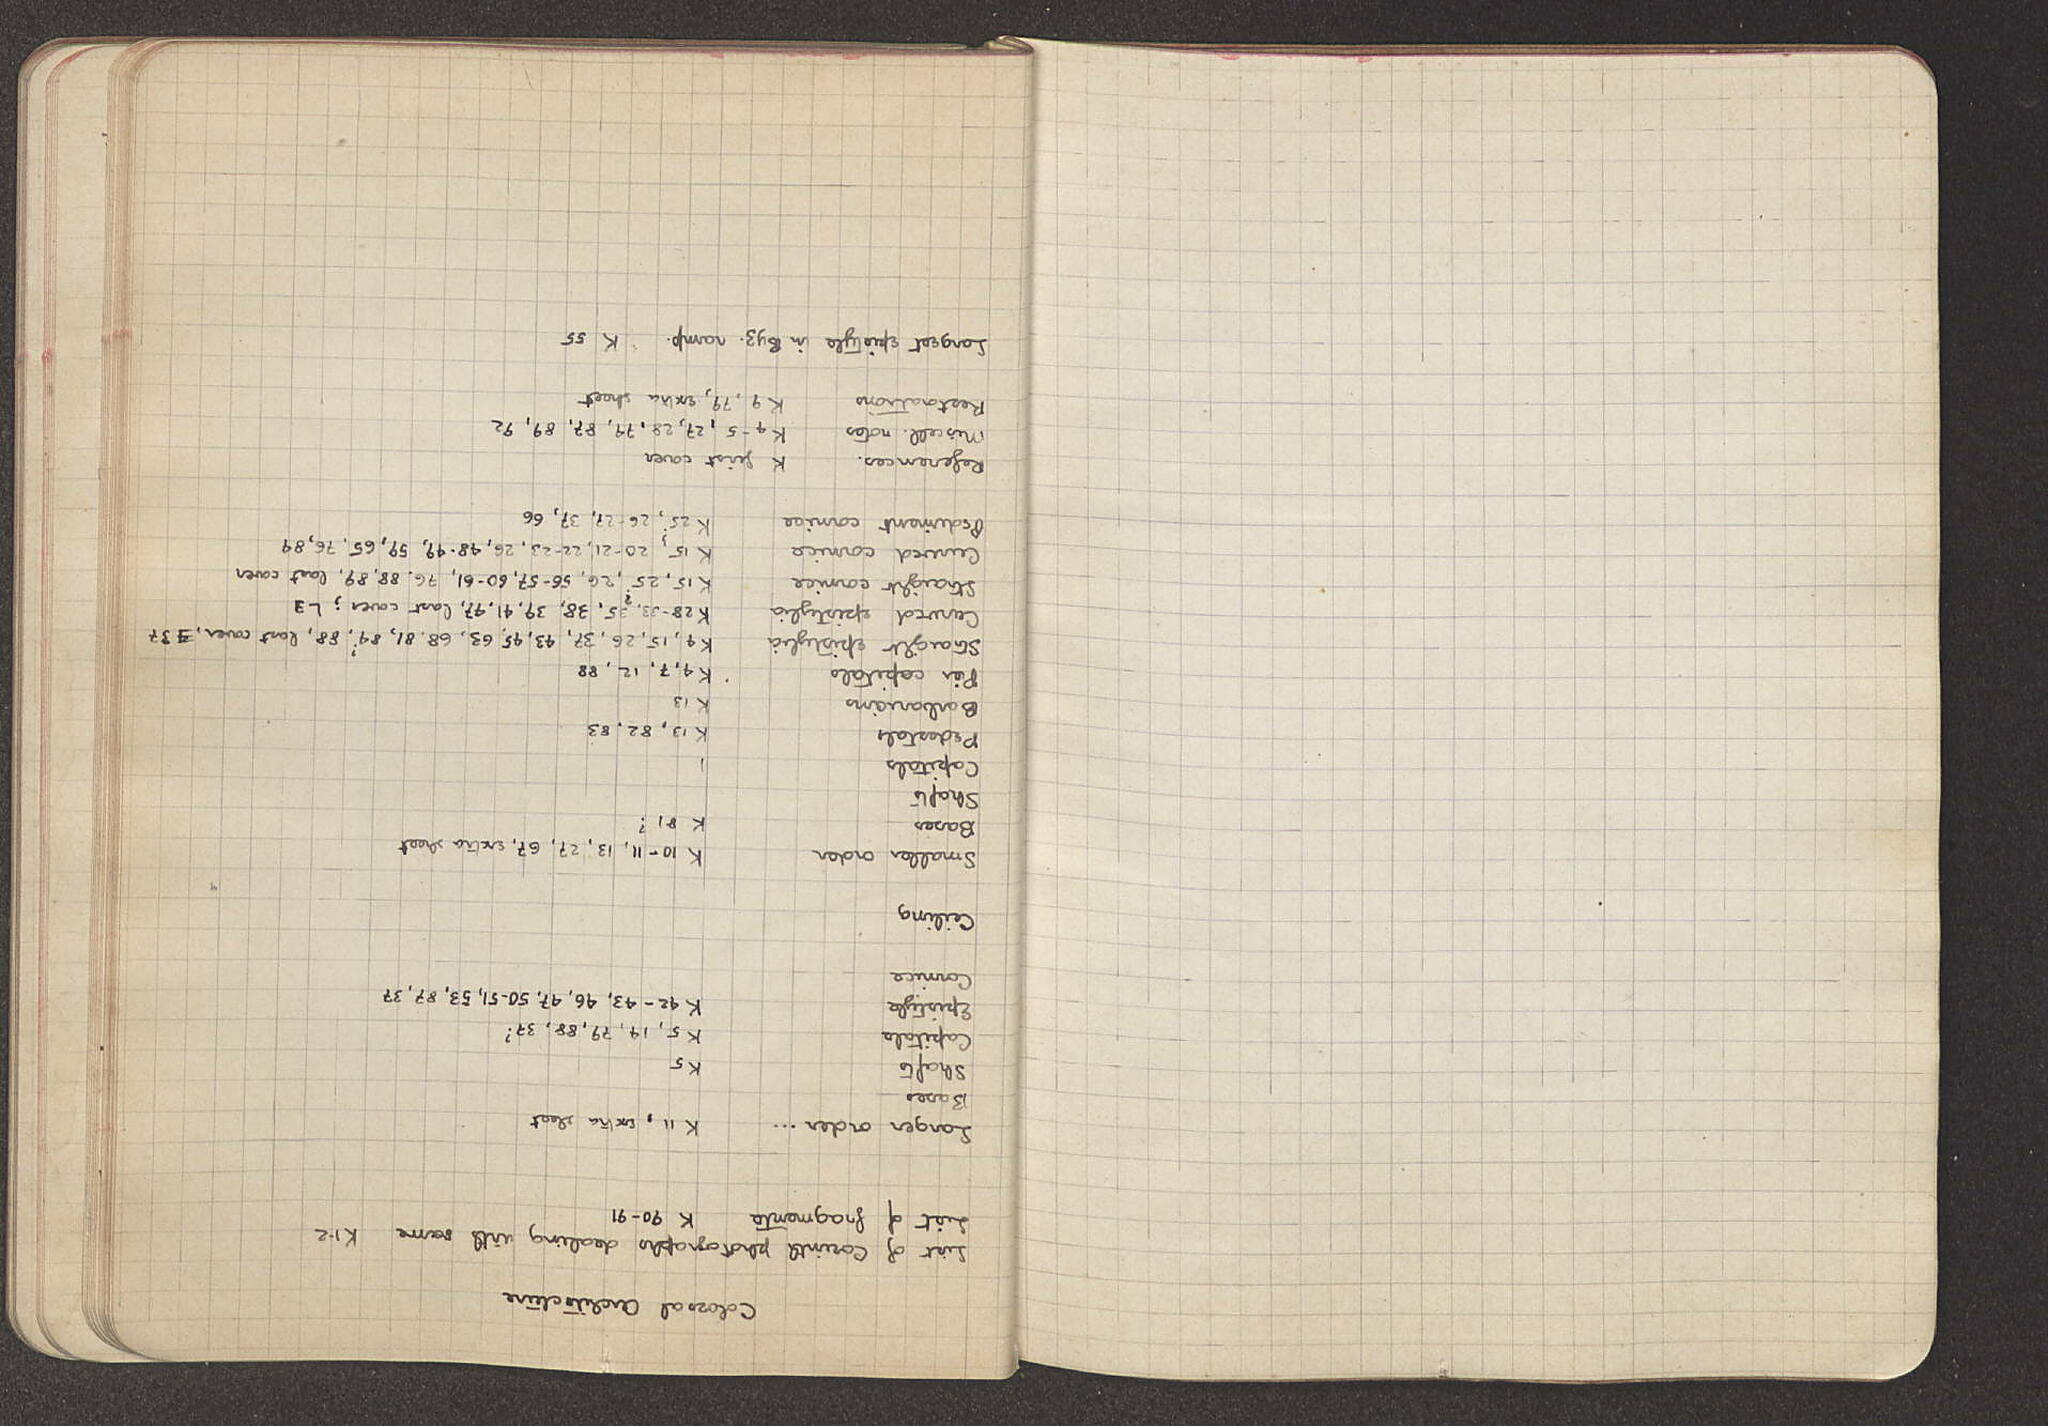 Colossal Architecture
List of Corinth photographs dealing with same K 1-2
List of fragments K 90-91
Larger order ... K 11, extra sheet
Bases
Shafts K 5
Capitals K 5, 14, 79, 88, 37?
Epistyle K 42-43, 46, 47, 50-51, 53, 87, 37
Cornice
Ceiling
Smaller order K 10-11, 13, 27, 67, extra sheet
Bases K 81?
Shafts
Capitals
Pedestals K 13, 82, 83
Barbarians K 13
Pier capitals K 4, 7, 12, 88
Straight epistylia K 4, 15, 26, 37, 43, 45, 63, 68, 81, 84?, 88, last cover,
Curved epistylia K 28-33, 35?, 38, 39, 41, 47, last cover; L 3
Straight cornice K 15, 25, 26, 56-57, 60-61, 76, 88, 89, last cover
Curved cornice K 15, 20-21, 22-23, 26, 48-49, 59, 65, 76, 84
Pediment cornice K 25, 26-27, 37, 66
References. K first cover
Miscell. notes K 4-5, 27, 28, 79, 87, 89, 92
Restorations K 9, 79, extra sheet
Largest epistyle in Byz. ramp. K 55